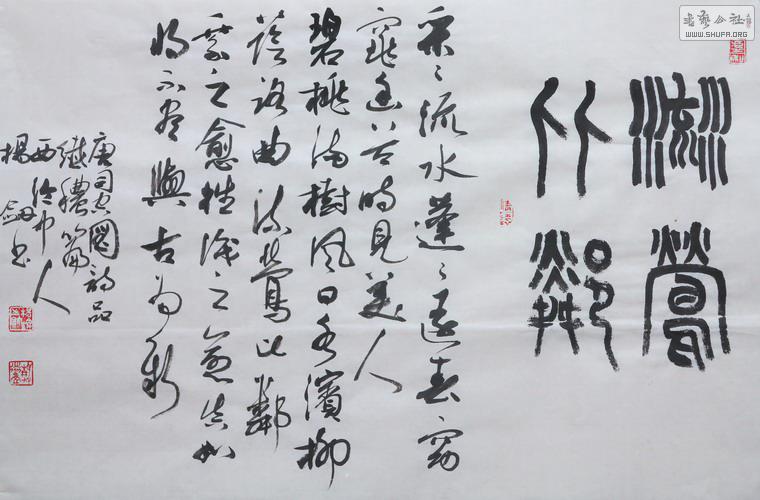 書藝公社
WWW.SHUFA.ORG
流鶯
比鄰
采々流水蓬々遠春窈
窕谷時見美人
碧桃滿樹風日水濱柳
蔭路曲流鶯比鄰
乘之愈往識之愈真如
將不盡與古為新
唐司空圖詩品
纖穠篇
西泠中人
楊劍書